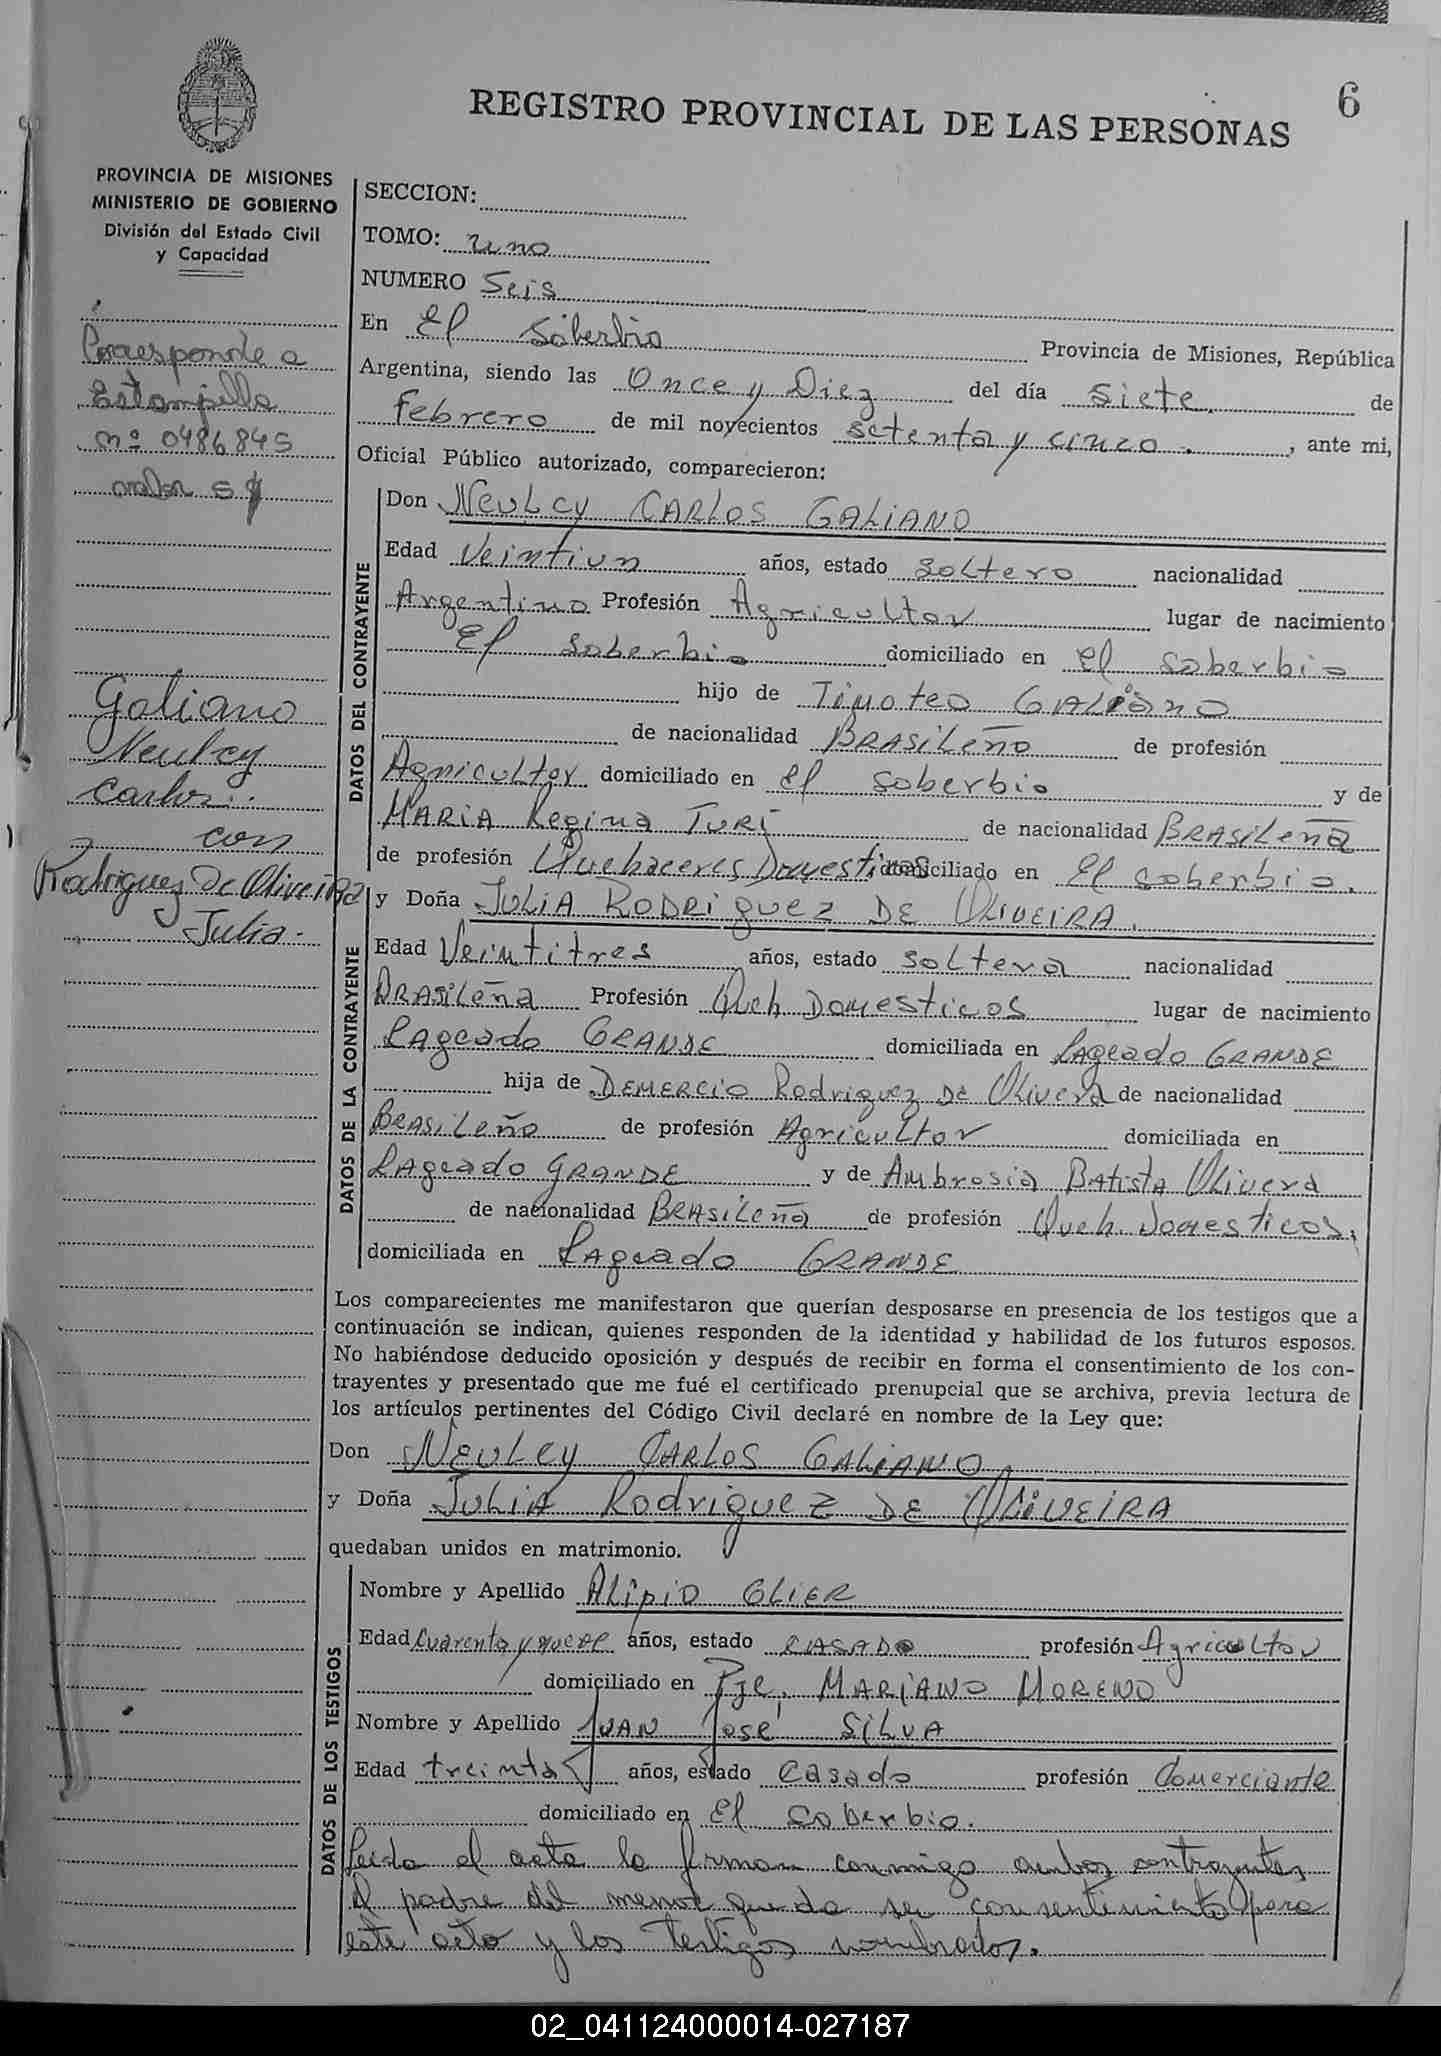 6
REGISTRO PROVINCIAL DE LAS PERSONAS
PROVINCIA DE MISIONES
MINISTERIO DE GOBIERNO
División del Estado Civil
y Capacidad
Corresponde a
Estampilla
nº 0486845
valor 5 $
Galiano
Neulcy
Carlos
con
Rodriguez De Oliveira
Julia.
SECCION:
TOMO: uno
NUMERO Seis
En El Soberbio Provincia de Misiones, República
Argentina, siendo las Once y Diez del día siete de
Febrero de mil novecientos setenta y cinco. , ante mi,
Oficial Público autorizado, comparecieron:
DATOS DEL CONTRAYENTE
Don Neulcy CARLOS GALIANO
Edad Veintiun años, estado soltero nacionalidad
Argentino Profesión Agricultor lugar de nacimiento
El soberbio domiciliado en El soberbio
hijo de Timoteo GALiano
de nacionalidad BRASiLeño de profesión
Agricultor domiciliado en El soberbio y de
MARiA Regina TURi de nacionalidad BRASiLeña
de profesión Quehaceres Domesticos domiciliado en El soberbio.
DATOS DE LA CONTRAYENTE
y Doña JULiA RODRiguez DE OLIVEiRA.
Edad Veintitres años, estado soltera nacionalidad
BRASiLeña Profesión Queh Domesticos lugar de nacimiento
Lageado GRANDE domiciliada en Lageado GRANDE
hija de DEMERCiO Rodriguez De Olivera de nacionalidad
BRASiLeño de profesión Agricultor domiciliada en
Lageado GRANDE y de Ambrosia BAtista Olivera
de nacionalidad BRASiLeña de profesión Queh. Domesticos,
domiciliada en Lageado GRANDE
Los comparecientes me manifestaron que querían desposarse en presencia de los testigos que a
continuación se indican, quienes responden de la identidad y habilidad de los futuros esposos.
No habiéndose deducido oposición y después de recibir en forma el consentimiento de los con-
trayentes y presentado que me fué el certificado prenupcial que se archiva, previa lectura de
los artículos pertinentes del Código Civil declaré en nombre de la Ley que:
Don NeuLcy CARLOS GALiANO
y Doña JULiA Rodriguez DE OLiVEiRA
quedaban unidos en matrimonio.
DATOS DE LOS TESTIGOS
Nombre y Apellido ALipiO GLIER
Edad Cuarenta y nueve años, estado CASADO profesión Agricultor
domiciliado en Pje. MARiANO MORENO
Nombre y Apellido JUAN José SiLVA
Edad treinta años, estado Casado profesión Comerciante
domiciliado en El Soberbio.
Leida el acta la firman conmigo ambos contrayentes
el padre del menor que da su consentimiento para
este acto y los testigos nombrados.
02_041124000014-027187